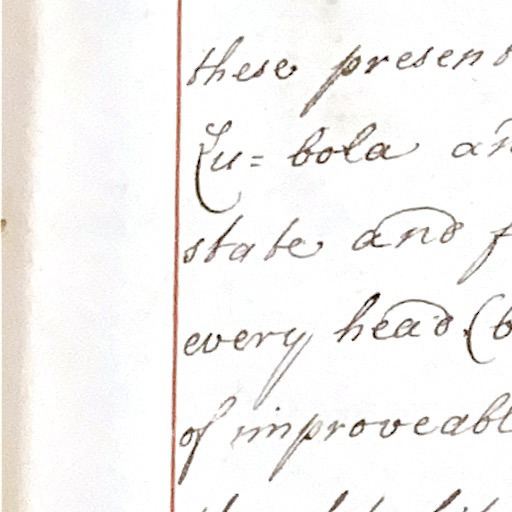 these presen
Zu= bola an
state and f
every head (b
of improveabl